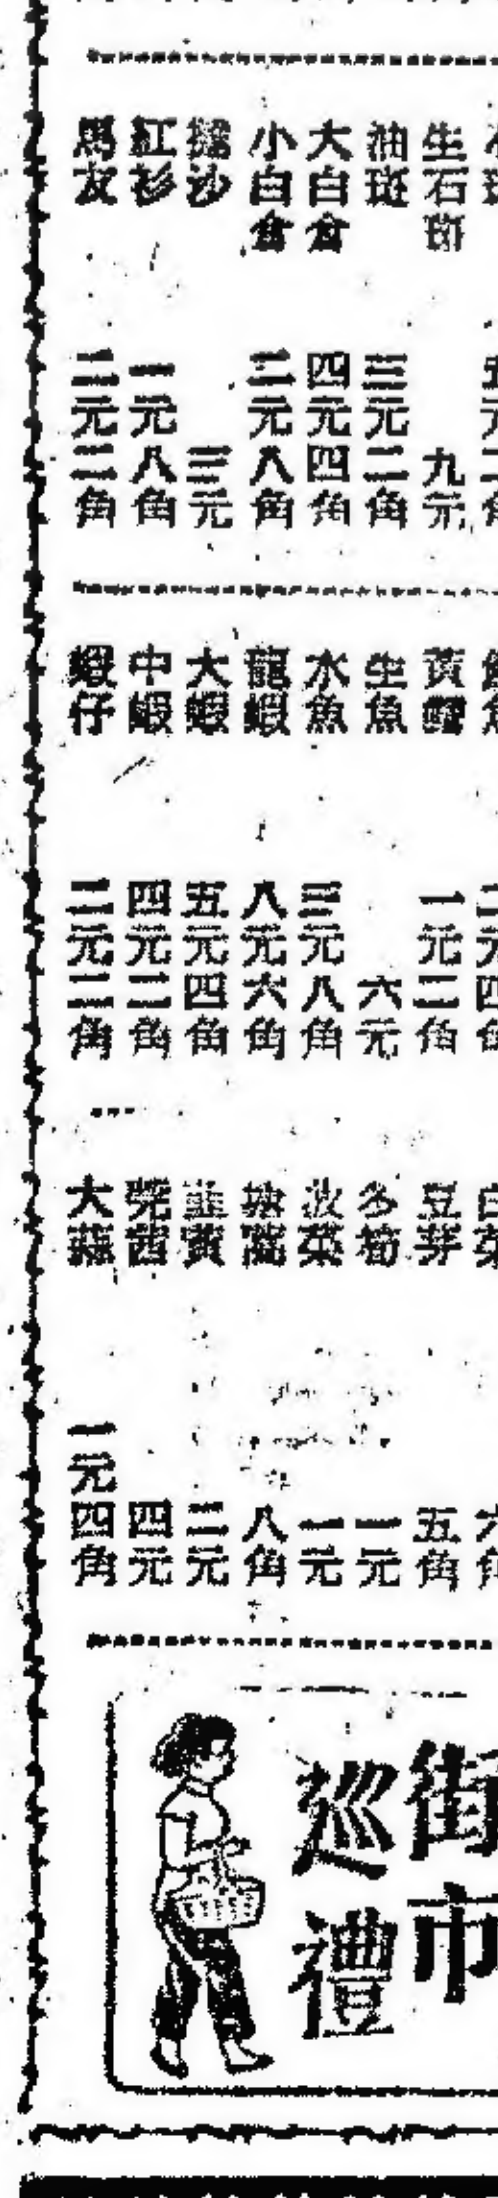 生石斑 九元
油斑 三元二角
大白倉 四元四角
小白倉 二元八角
沙 三元
紅衫 一元八角
馬友 二元二角
二元四角
黃鱔 一元二角
生魚 六元
水魚 三元八角
龍蝦 八元六角
大蝦 五元四角
中蝦 四元二角
蝦仔 二元二角
白菜 六角
豆芽 五角
冬筍 一元
波菜 一元
塘蒿 八角
韮黃 二元
茜 四元
大蒜 一元四角
街市
巡禮